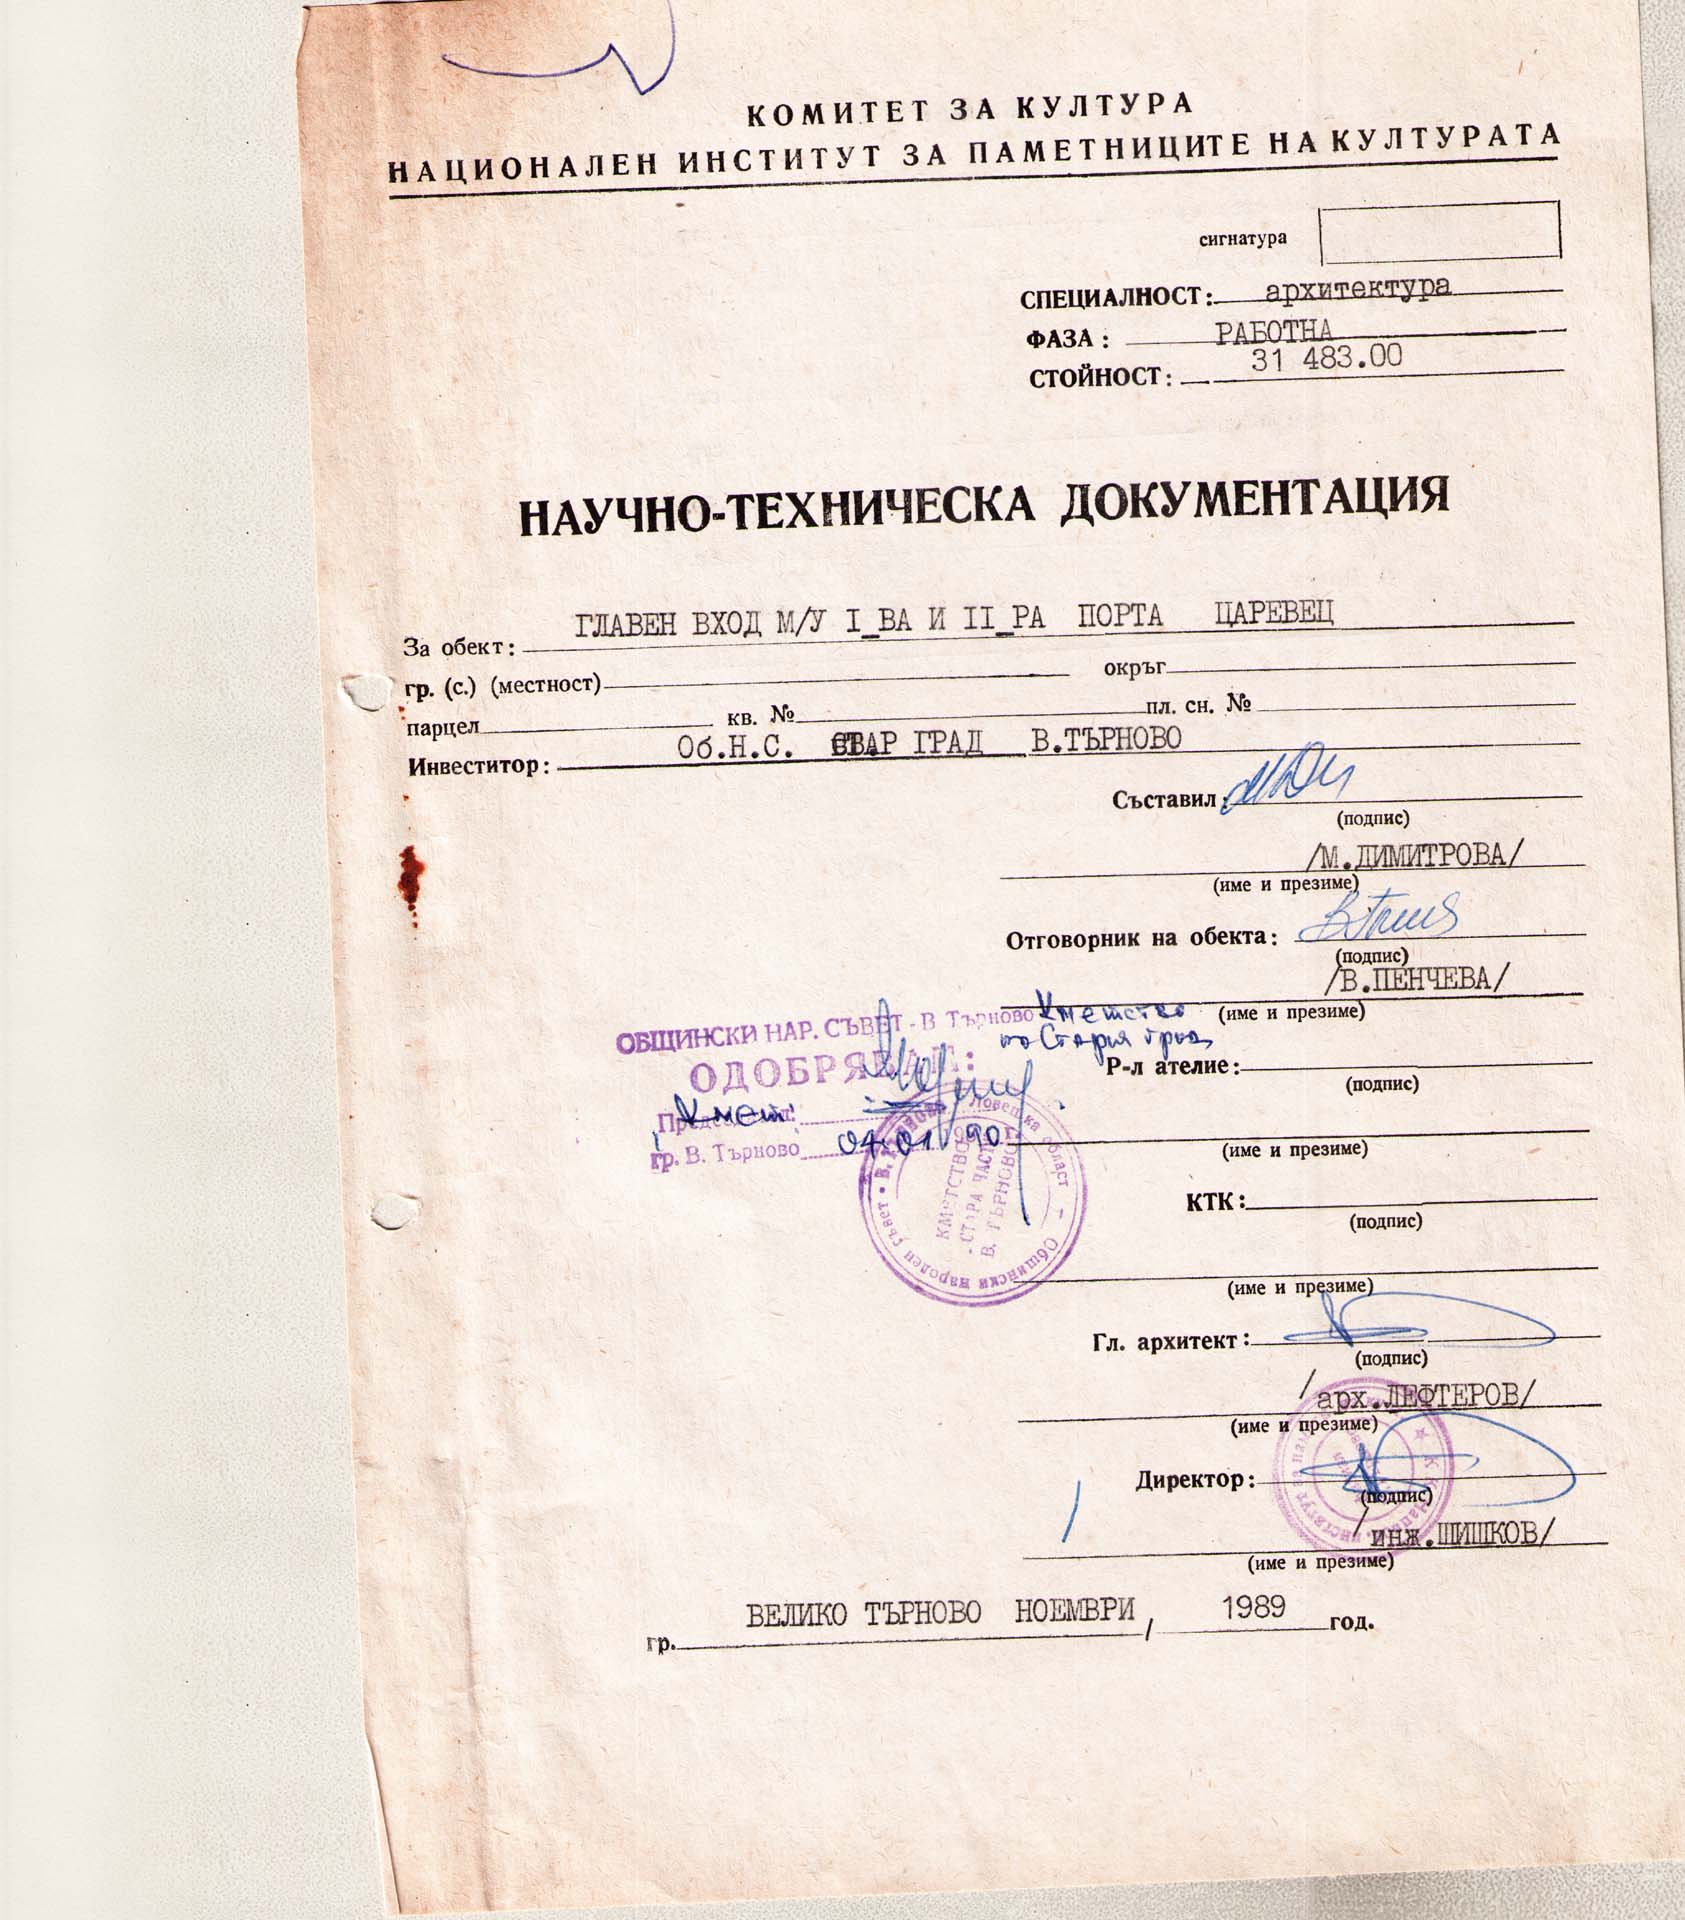 КОМИТЕТ ЗА КУЛТУРА
НАЦИОНАЛЕН ИНСТИТУТ ЗА ПАМЕТНИЦИТЕ НА КУЛТУРАТА
сигнатура
СПЕЦИАЛНОСТ: архитектура
ФАЗА: РАБОТНА
СТОЙНОСТ: 31 483.00
НАУЧНО-ТЕХНИЧЕСКА ДОКУМЕНТАЦИЯ
За обект: ГЛАВЕН ВХОД М/У I_ВА И II_РА ПОРТА ЦАРЕВЕЦ
гр. (с.) (местност) окръг
парцел кв. № пл. сн. №
Инвеститор: Об.Н.С. СТАР ГРАД В.ТЪРНОВО
Съставил:
(подпис)
/М.ДИМИТРОВА/
(име и презиме)
Отговорник на обекта:
(подпис)
/В.ПЕНЧЕВА/
(име и презиме)
ОБЩИНСКИ НАР. СЪВЕТ - В Търново Кметство
по Стария град
ОДОБРЯВАМ:
Р-л ателие:
(подпис)
Председател: Кмет:
гр. В. Търново 04.01 1990 г.
(име и презиме)
Общински народен съвет • В. Търново - Ловешка област -
КМЕТСТВО
СТАРА ЧАСТ
В. ТЪРНОВО
КТК:
(подпис)
(име и презиме)
Гл. архитект:
(подпис)
/арх.ЛЕФТЕРОВ/
(име и презиме)
Директор:
(подпис)
/инж.ШИШКОВ/
(име и презиме)
гр. ВЕЛИКО ТЪРНОВО НОЕМВРИ / 1989 год.